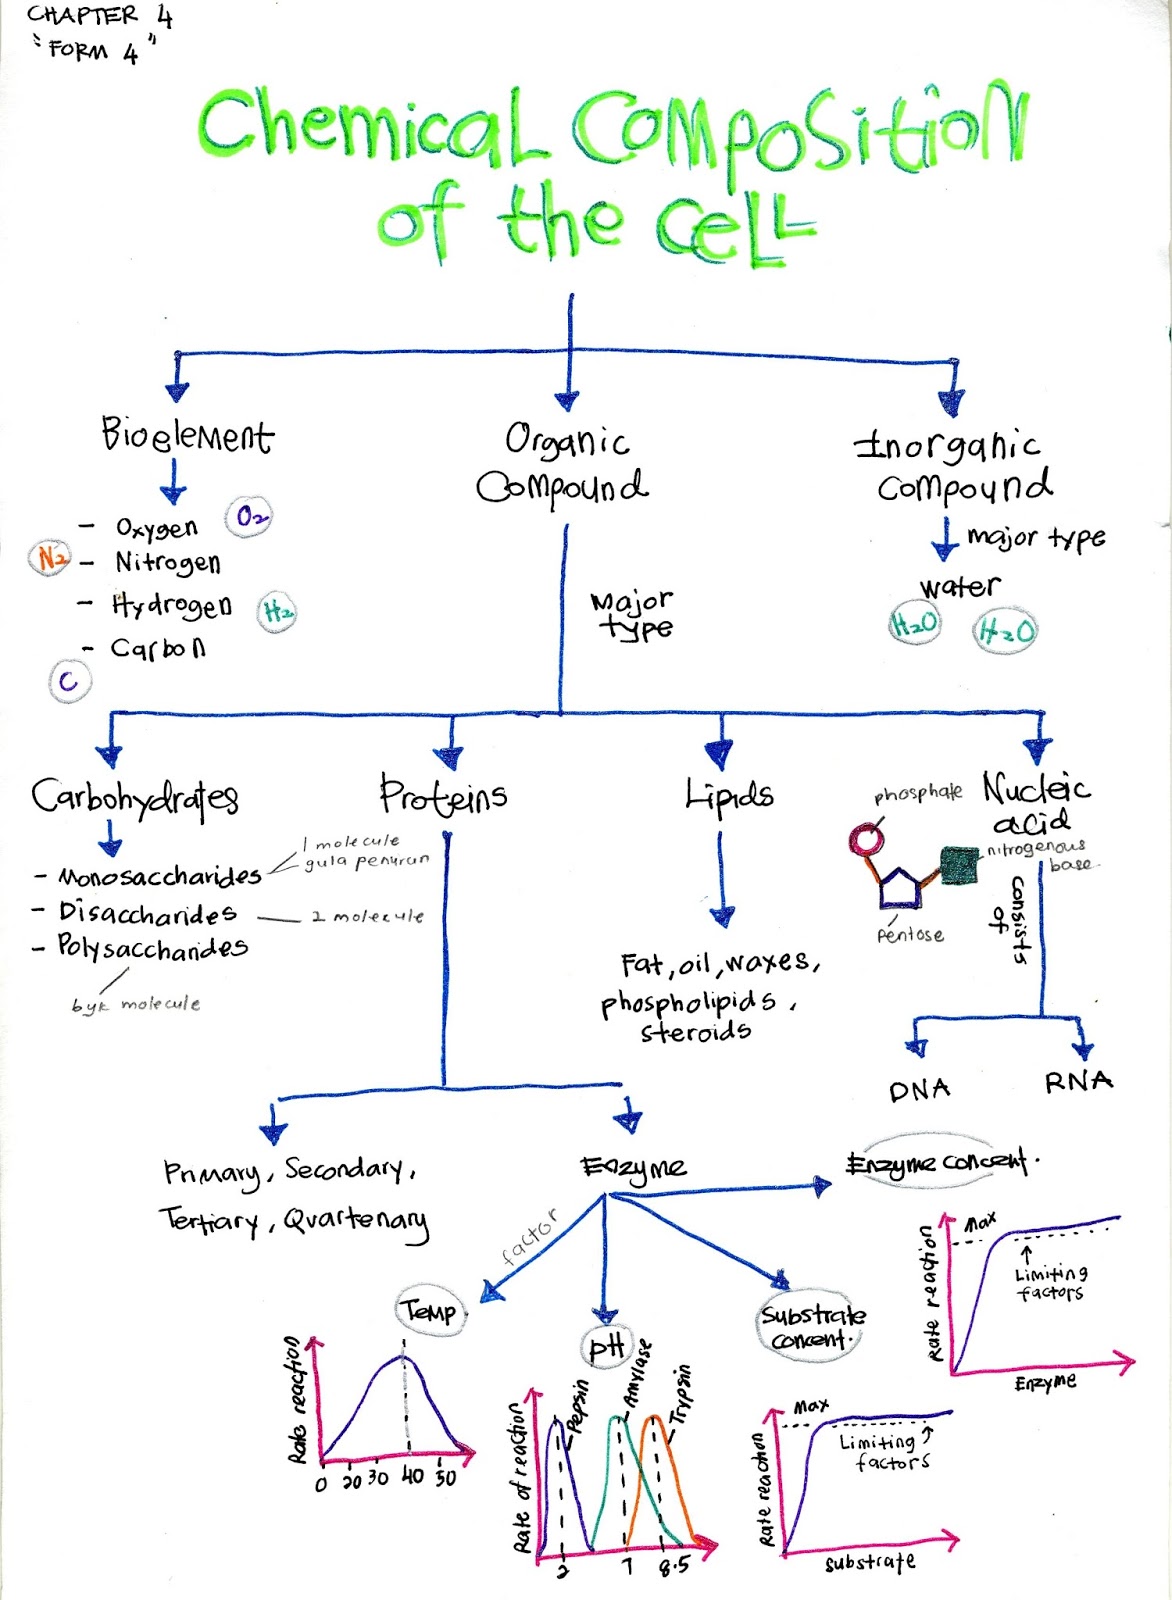 CHAPTER 4
"FORM 4"
Chemical Composition
of the Cell
Bioelement
Organic
Compound
Inorganic
compound
- Oxygen O₂
N₂ - Nitrogen
- Hydrogen H₂
- Carbon
C
Major
type
major type
water
H₂O H₂O
Carbohydrates
Proteins
Lipids
Nucleic
acid
phosphate
nitrogenous
base
pentose
consists
of
1 molecule
gula penurun
- Monosaccharides
- Disaccharides 2 molecule
- Polysaccharides
byk molecule
Fat, oil, waxes,
phospholipids,
steroids
DNA
RNA
Primary, Secondary,
Tertiary, Quartenary
Enzyme
factor
Enzyme concent.
Temp
pH
Substrate
concent.
Rate reaction
0 20 30 40 50
Rate of reaction
Pepsin
Amylase
Trypsin
2 7 8.5
Rate reaction
Max
Limiting
factors
substrate
Rate reaction
Max
Limiting
factors
Enzyme